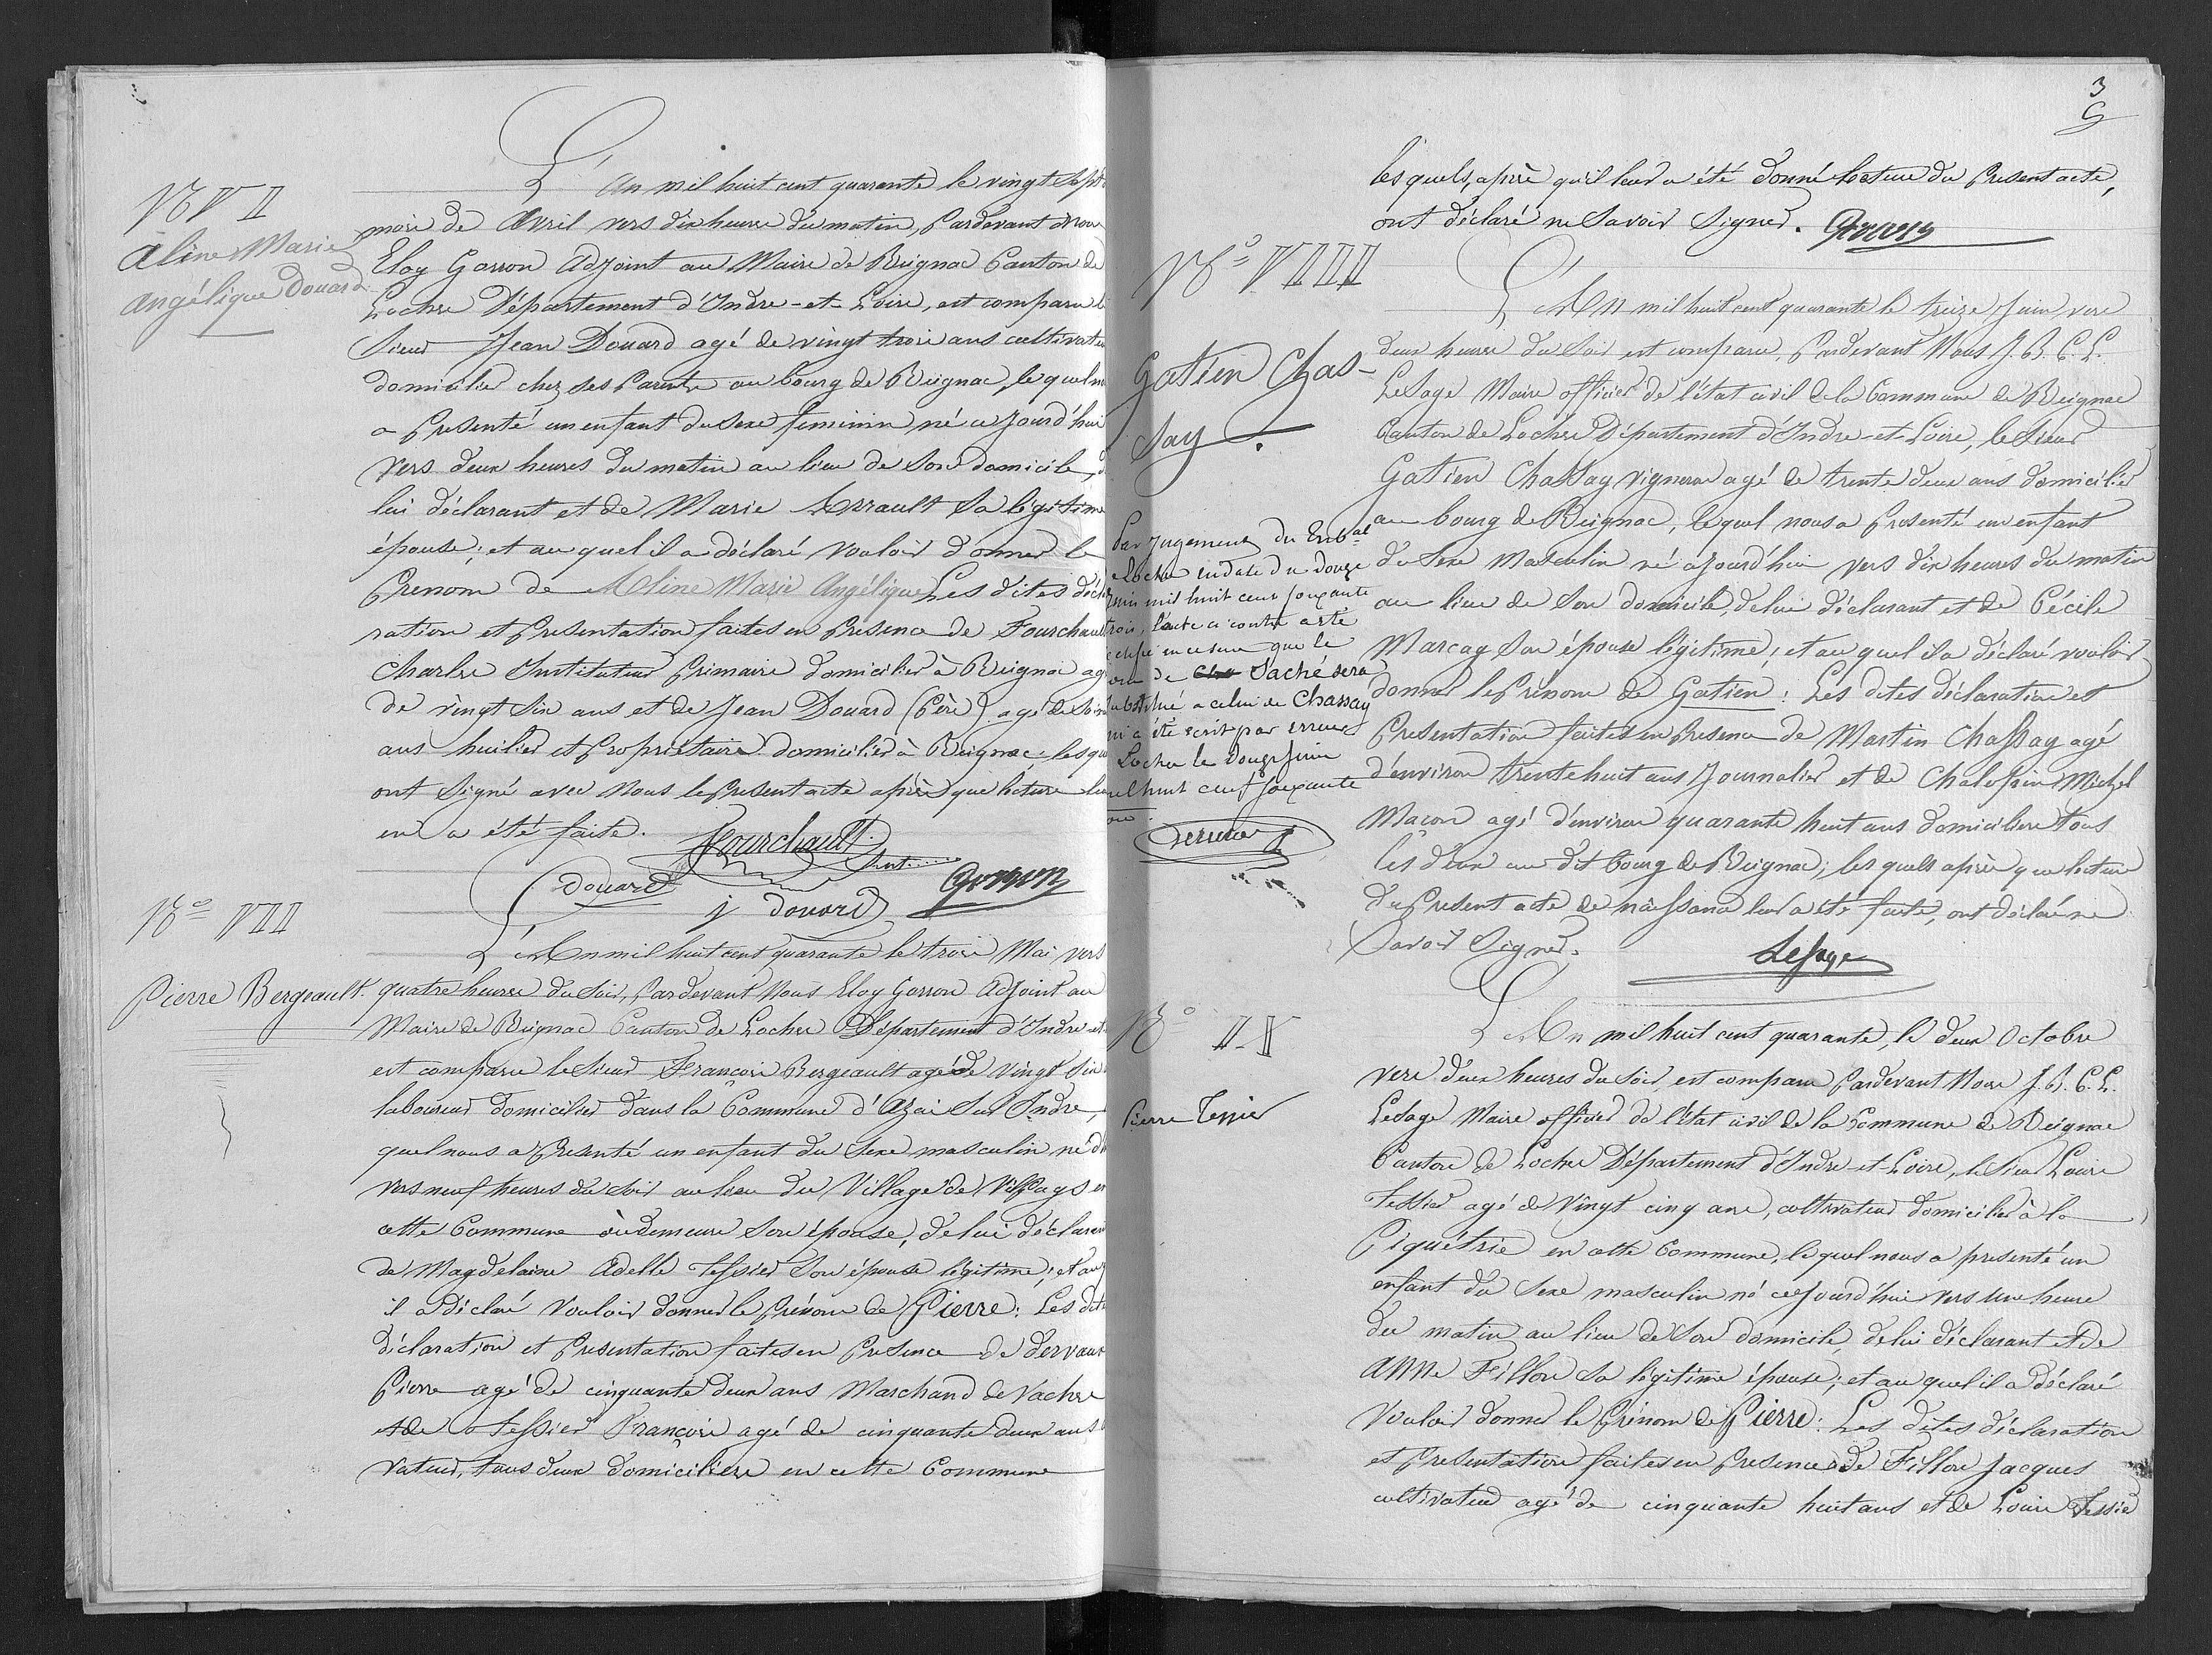 N° VI
Aline Marie
Angélique Douard
L'An mil huit cent quarante le vingt Sept
mois de Avril vers dix heures du matin, Pardevant Nous
Eloy Gorron Adjoint au Maire de Reignac Canton de
Loches Département d'Indre-et-Loire, est comparu le
Sieur Jean Douard agé de vingt trois ans cultivateur
domicilié chez ses Parents au bourg de Reignac, lequel
a Presenté un enfant du Sexe feminin, né ce jourd'hui
vers deux heures du matin au lieu de Son domicile, de
lui déclarant et de Marie Sa légitime
épouse; et au quel il a déclaré vouloir donner le
Prenom de Aline Marie Angélique Les dites décla
ration et Presentation faites en Presence de Fourchault
Charles Instituteur Primaire domicilié à Reignac agé
de vingt Six ans et de Jean Douard (Père) agé de
ans huilier et Propriétaire domicilié à Reignac; lesquels
ont Signé avec Nous le Present acte après que lecture leur
en a été faite.
Fourchault
Inst
Douard
J douard
Gorron
N° VII
Pierre Bergeault
L'An mil huit cent quarante le trois Mai vers
quatre heures du Soir, Pardevant Nous Eloy Gorron Adjoint au
Maire de Reignac Canton de Loches Département d'Indre et
est comparu le Sieur François Bergeault agé de vingt Six
laboureur domicilié dans la Commune d'Azai Sur Indre,
quel nous a Presenté un enfant du Sexe masculin né
vers neuf heures du Soir au lieu du Village de en
cette Commune où demeure Son épouse, de lui déclarant
de Magdelaine Adelle Tessier Son épouse légitime; et au
il a déclaré Vouloir donner le Prénom de Pierre: Les dites
déclaration et Presentation faites en Presence de Dervaux
Pierre agé de cinquante deux ans Marchand de Vaches
et de Tessier François agé de cinquante deux ans
vateur, tous deux domiciliés en cette Commune
3
lesquels, après qu'il leur a été donné lecture du Present acte,
ont déclaré ne Savoir Signer. Gorron
N° VIII
Gatien Chas-
say.
Par jugement du Tribal
Loches en date du douze
juin mil huit cent soixante
trois, l'acte ci contre a été
rectifié en ce sens que le
nom de Vaché sera
substitué a celui de Chassay
qui a été écrit par erreur
Loches le douze juin
mil huit cent soixante
L'An mil huit cent quarante le treize Juin, vers
deux heures du Soir est comparu, Pardevant Nous J. B. C. L.
LeSage Maire officier de l'état civil de la Commune de Reignac
Canton de Loches Département d'Indre-et-Loire, le Sieur
Gatien Chassay Vigneron agé de trente deux ans domicilié
au bourg de Reignac, lequel nous a Presenté un enfant
du Sexe Masculin né ajourd'hui vers dix heures du matin
au lieu de Son domicile, de lui déclarant et de Cécile
Marcay Son épouse légitime; et au quel il a déclaré vouloir
donner le Prénom de Gatien: Les dites déclaration et
Presentation faites en Presence de Martin Chassay agé
d'environ trente huit ans Journalier et de Michel
Macon agé d'environ quarante huit ans domiciliers tous
les deux au dit bourg de Reignac; les quels après que lecture
du Present acte de naissance leur a été faite, ont déclaré ne
Savoir Signer.
LeSage
N° IX
Pierre Tessier
L'An mil huit cent quarante, le deux Octobre
vers deux heures du Soir, est comparu Pardevant Nous J. B. C. L.
LeSage Maire officier de l'état civil de la Commune de Reignac
Canton de Loches Département d'Indre-et-Loire, le Sieur Louis
Tessier agé de Vingt cinq ans, cultivateur domicilié à la
Piquétrie en cette Commune, lequel nous a presenté un
enfant du Sexe masculin né cejourd'hui vers une heure
du matin au lieu de Son domicile, de lui déclarant et de
Anne Fillon Sa légitime épouse; et au quel il a déclaré
Vouloir donner le Prénom de Pierre: Les dites déclaration
et Presentation faites en Presence de Fillon Jacques
cultivateur agé de cinquante huit ans et de Louis Tessier